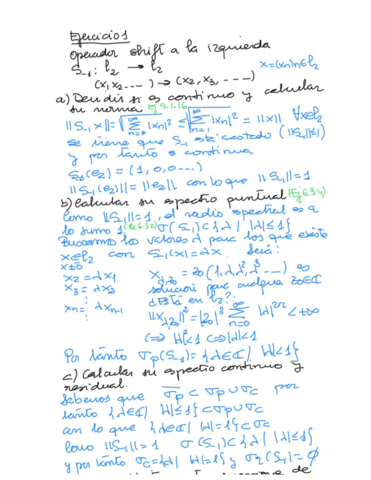 Ejercicio 1
Operador shift a la izquierda
S₋₁: l₂ → l₂
(x₁, x₂ ...) → (x₂, x₃, ----) x=(xn)n∈l₂
a) Decidir si es continuo y calcular
su norma Ej 5.1.16
||S₋₁x|| = √∑_{n=2}^∞ |xn|² ≤ √∑_{n=1}^∞ |xn|² = ||x|| ∀x∈l₂
se tiene que S₋₁ está acotado (||S₋₁||≤1)
y por tanto es continua
S₋₁(e₂) = (1, 0, 0 ...)
||S₋₁(e₂)|| = ||e₂|| con lo que ||S₋₁|| = 1
b) Calcular su espectro puntual (Ej 6.3.4)
Como ||S₋₁|| = 1, el radio espectral es a
lo sumo 1 σ(S₋₁) ⊂ {λ / |λ| ≤ 1}
Buscamos los valores λ para los que existe
x∈l₂ con S₋₁(x) = λx. Será:
x≠0
x₂ = λx₁
x₃ = λx₂
⋮
xn = λxn-1
x_{λ,z₀} = z₀(1, λ, λ², λ³ ---) es
solución para cualquier z₀∈ℂ
¿Está en l₂?
||x_{λ,z₀}||² = |z₀|² ∑_{n=0}^∞ |λ|^{2n} < +∞
⟺ |λ|² < 1 ⟺ |λ| < 1
Por tanto σp(S₋₁) = {λ∈ℂ / |λ| < 1}
c) Calcular su espectro continuo y
residual.
Sabemos que σ̄p ⊂ σp ∪ σc por
tanto {λ∈ℂ / |λ| ≤ 1} ⊂ σp ∪ σc
con lo que {λ∈ℂ / |λ| = 1} ⊂ σc
Como ||S₋₁|| = 1 σ(S₋₁) ⊂ {λ / |λ| ≤ 1}
y por tanto σc = {λ / |λ| = 1} y σr(S₋₁) = ∅